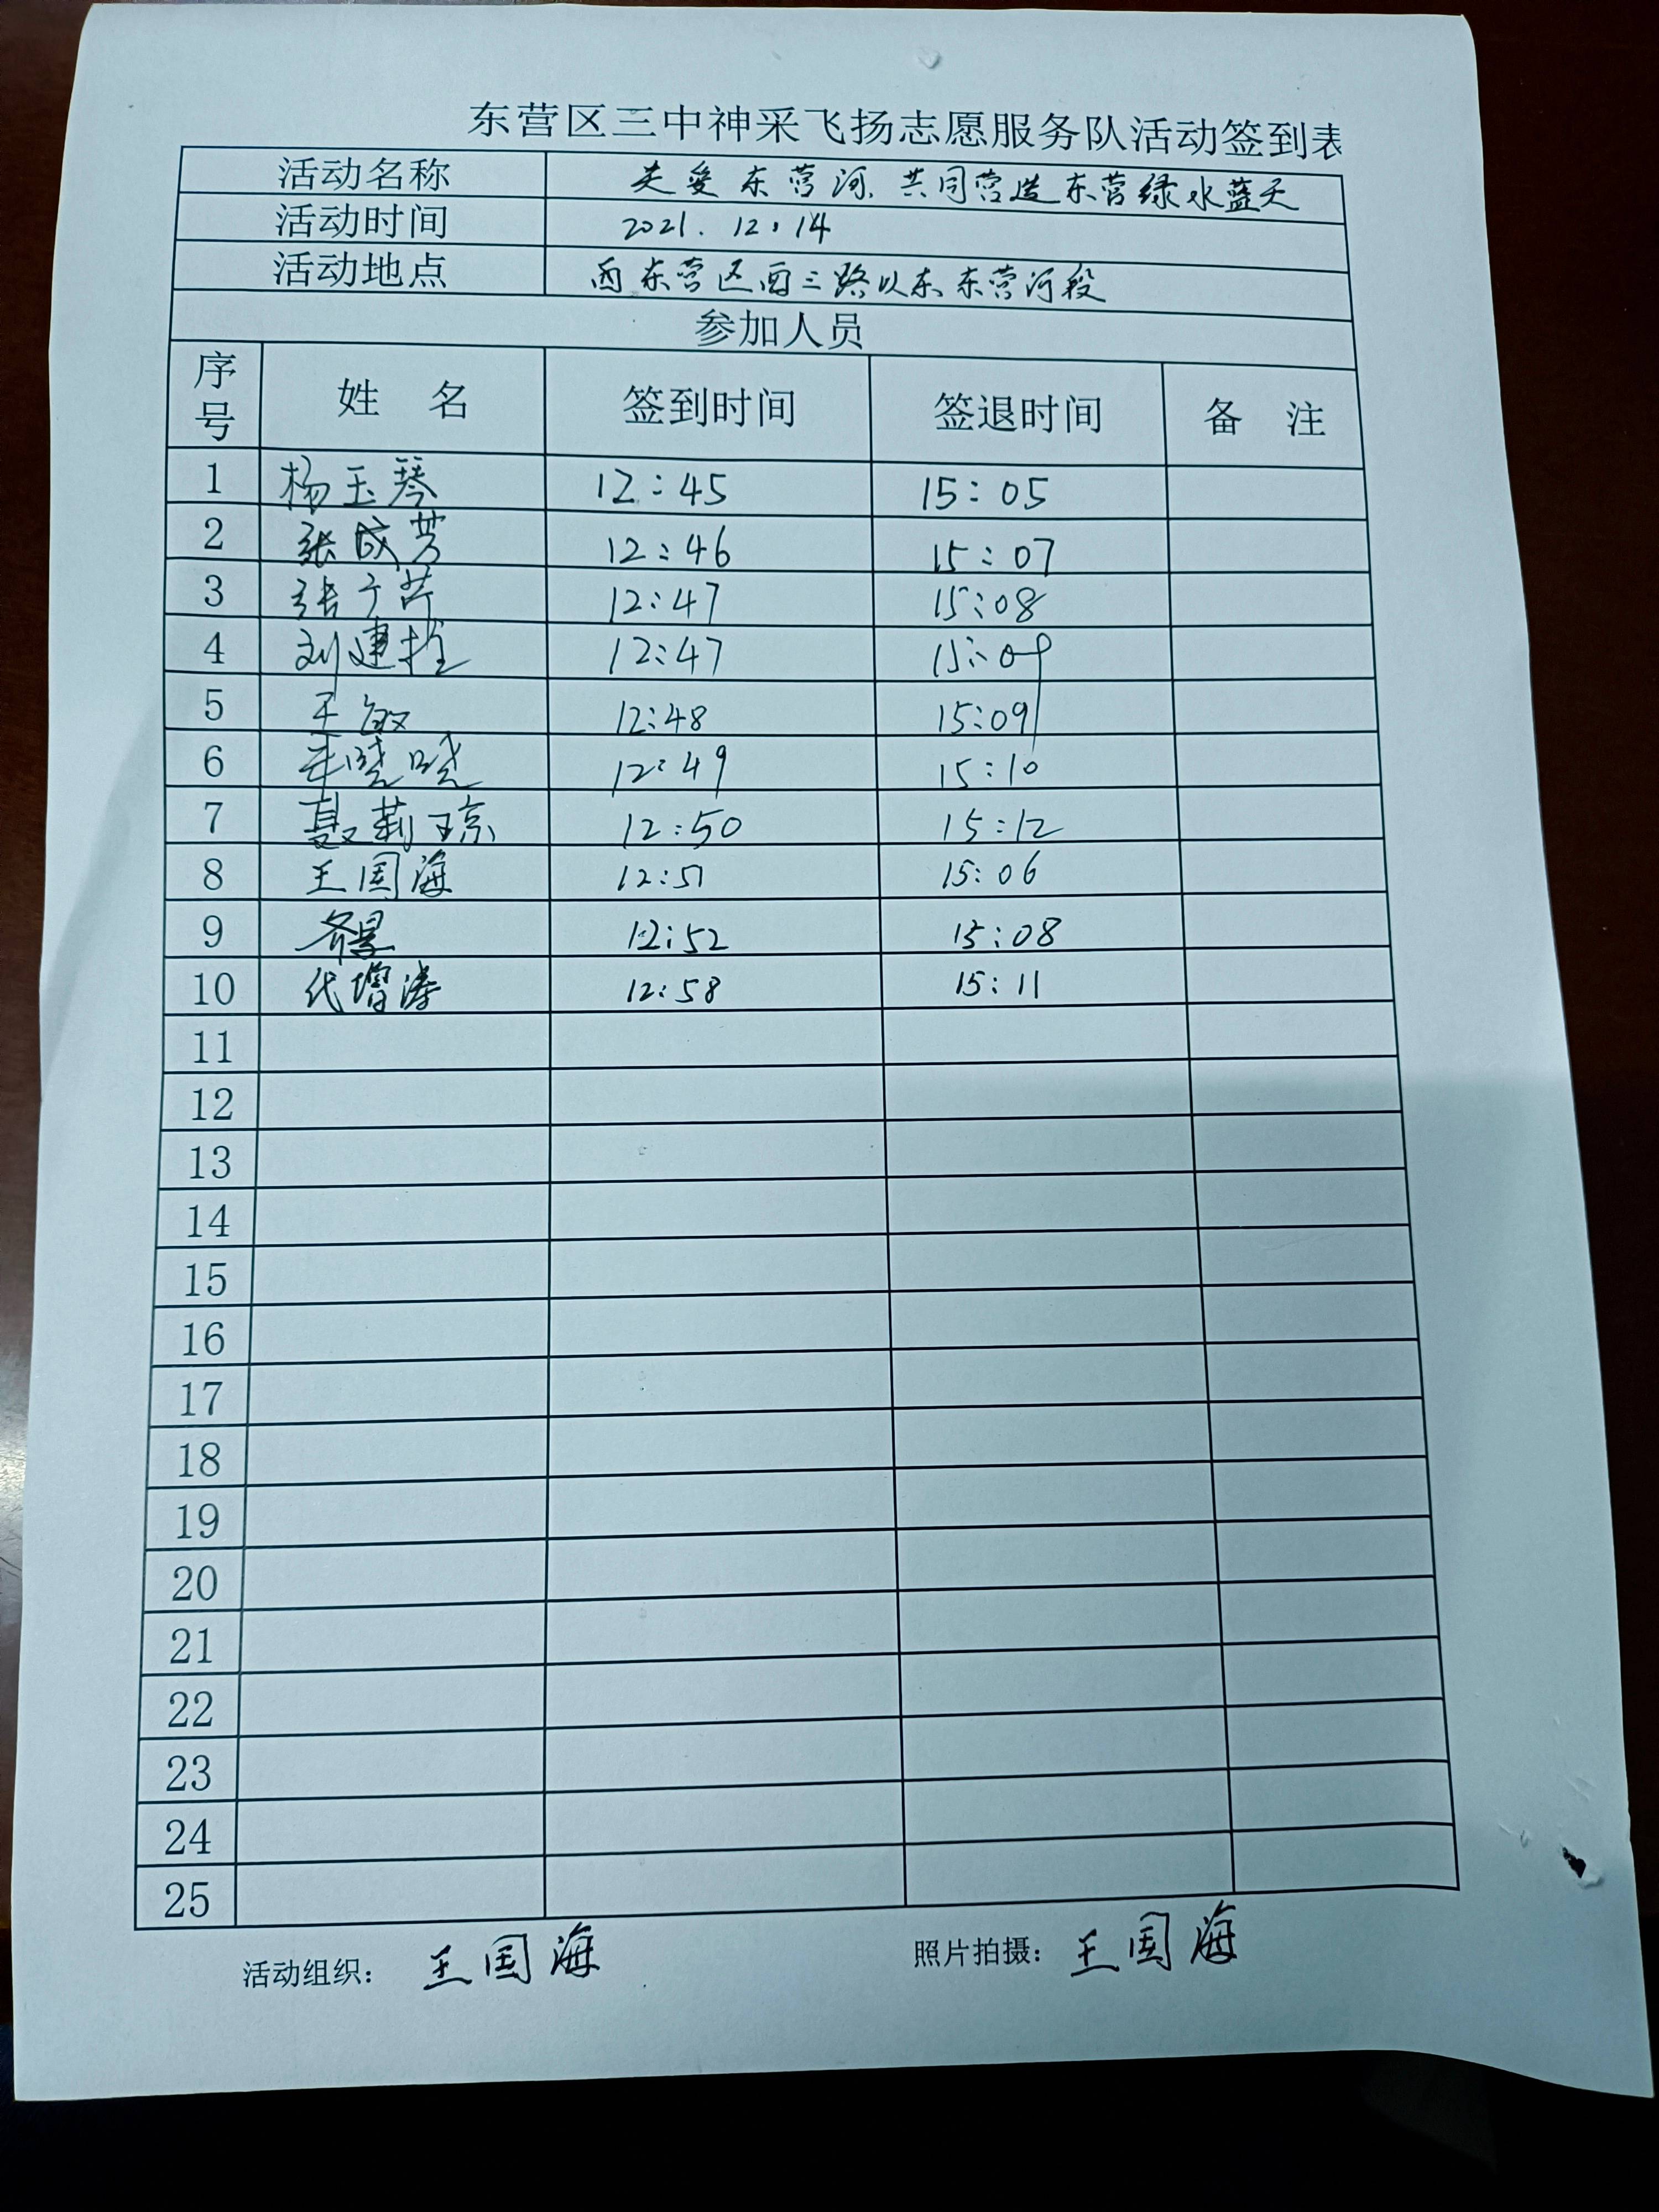 东营区三中神采飞扬志愿服务队活动签到表
活动名称 关爱东营河.共同营造东营绿水蓝天
活动时间 2021.12.14
活动地点 西东营区西三路以东东营河段
参加人员
序号 姓 名 签到时间 签退时间 备 注
1 杨玉琴 12:45 15:05
2 张成芳 12:46 15:07
3 张子芹 12:47 15:08
4 刘建拴 12:47 15:09
5 王敏 12:48 15:09
6 晓晓 12:49 15:10
7 聂莉琼 12:50 15:12
8 王国海 12:51 15:06
9 12:52 15:08
10 代增涛 12:58 15:11
11
12
13
14
15
16
17
18
19
20
21
22
23
24
25
活动组织: 王国海 照片拍摄: 王国海